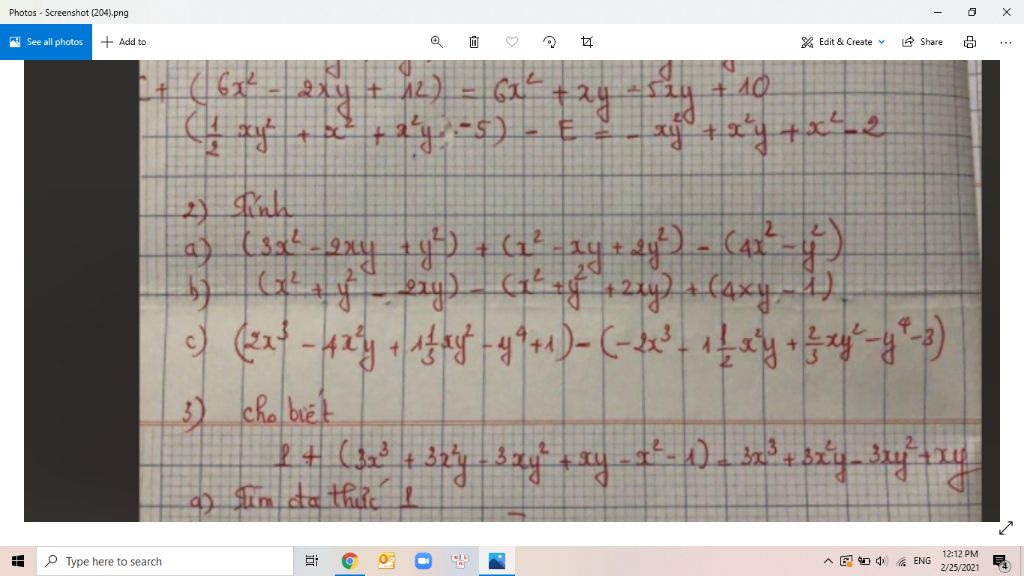 Photos - Screenshot (204).png
See all photos
Add to
Edit & Create
Share
+ (6x² - 2xy + 12) = 6x² + xy - 5xy + 10
(1/2 xy² + x² + x²y - 5) - E = - xy² + x²y + x² - 2
2) Tính
a) (3x² - 2xy + y²) + (x² - xy + 2y²) - (4x² - y²)
b) (x² + y² - 2xy) - (x² + y² + 2xy) + (4xy - 1)
c) (2x³ - 4x²y + 1 1/3 xy² - y⁴ + 1) - (-2x³ - 1 1/2 x²y + 2/3 xy² - y⁴ - 3)
3) cho biết
P + (3x³ + 3x²y - 3xy² + xy - x² - 1) = 3x³ + 3x²y - 3xy² + xy
a) Tìm đa thức P
Type here to search
ENG
12:12 PM
2/25/2021
4